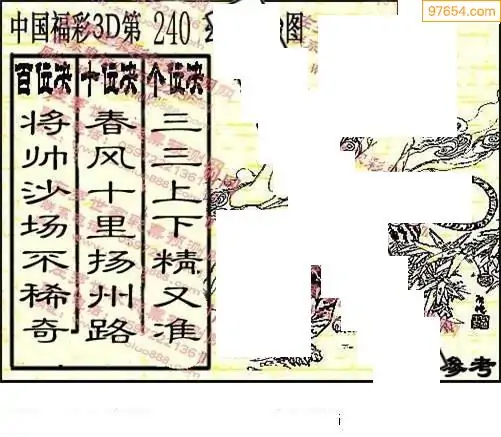 97654.com
中国福彩3D第 240 图
百位决 十位决 个位决
将帅沙场不稀奇
春风十里扬州路
三三上下精又准
参考
i